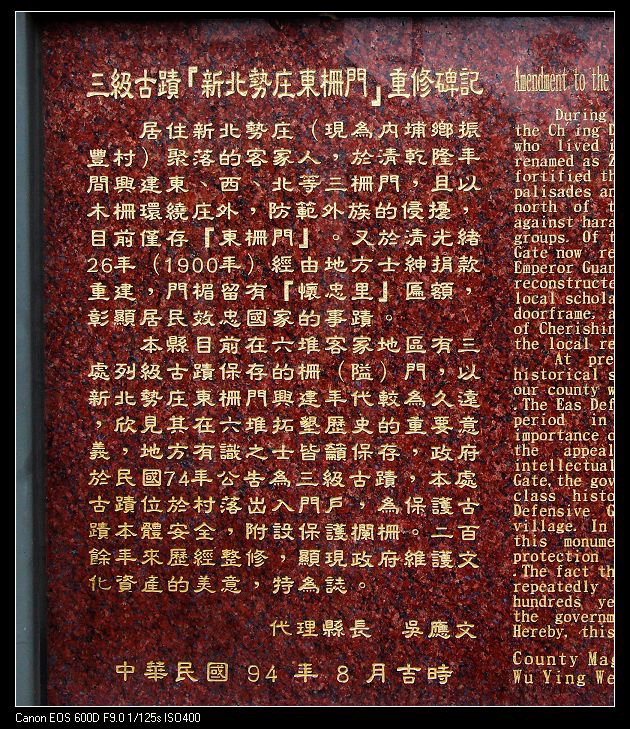 三級古蹟「新北勢庄東柵門」重修碑記
居住新北勢庄（現為內埔鄉振
豐村）聚落的客家人，於清乾隆年
間興建東、西、北等三柵門，且以
木柵環繞庄外，防範外族的侵擾，
目前僅存『東柵門』。又於清光緒
26年（1900年）經由地方士紳捐款
重建，門楣留有『懷忠里』匾額，
彰顯居民效忠國家的事蹟。
本縣目前在六堆客家地區有三
處列級古蹟保存的柵（隘）門，以
新北勢庄東柵門興建年代較為久遠
，欣見其在六堆拓墾歷史的重要意
義，地方有識之士皆籲保存，政府
於民國74年公告為三級古蹟，本處
古蹟位於村落出入門戶，為保護古
蹟本體安全，附設保護欄柵。二百
餘年來歷經整修，顯現政府維護文
化資產的美意，特為誌。
代理縣長 吳應文
中華民國 94 年 8 月吉時
Amendment to the
During
the Ch'ing D
who lived i
renamed as Z
fortified th
palisades an
north of t
against hara
groups. Of t
Gate now re
Emperor Guan
reconstructe
local schola
doorframe, a
of Cherishin
the local re
At pre
historical s
our county w
. The Eas Def
period in
importance o
the appeal
intellectual
Gate, the gov
class histo
Defensive G
village. In
this monume
protection
The fact th
repeatedly
hundreds ye
the governm
Hereby, this
County Mag
Wu Ying We
Canon EOS 600D F9.0 1/125s ISO400